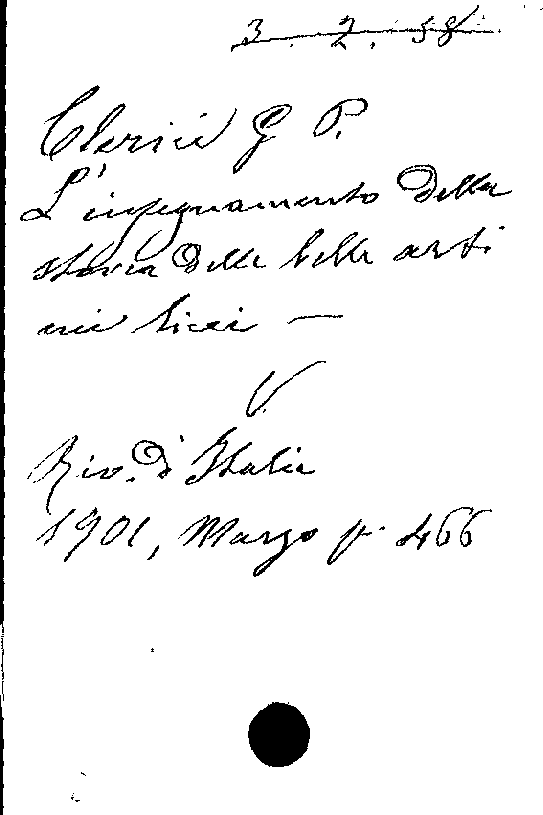 3. 2. 58
Clerici G P.
L'insegnamento della
storia delle belle arti
nei licei —
V.
Riv. d'Italia
1901, Marzo p. 466